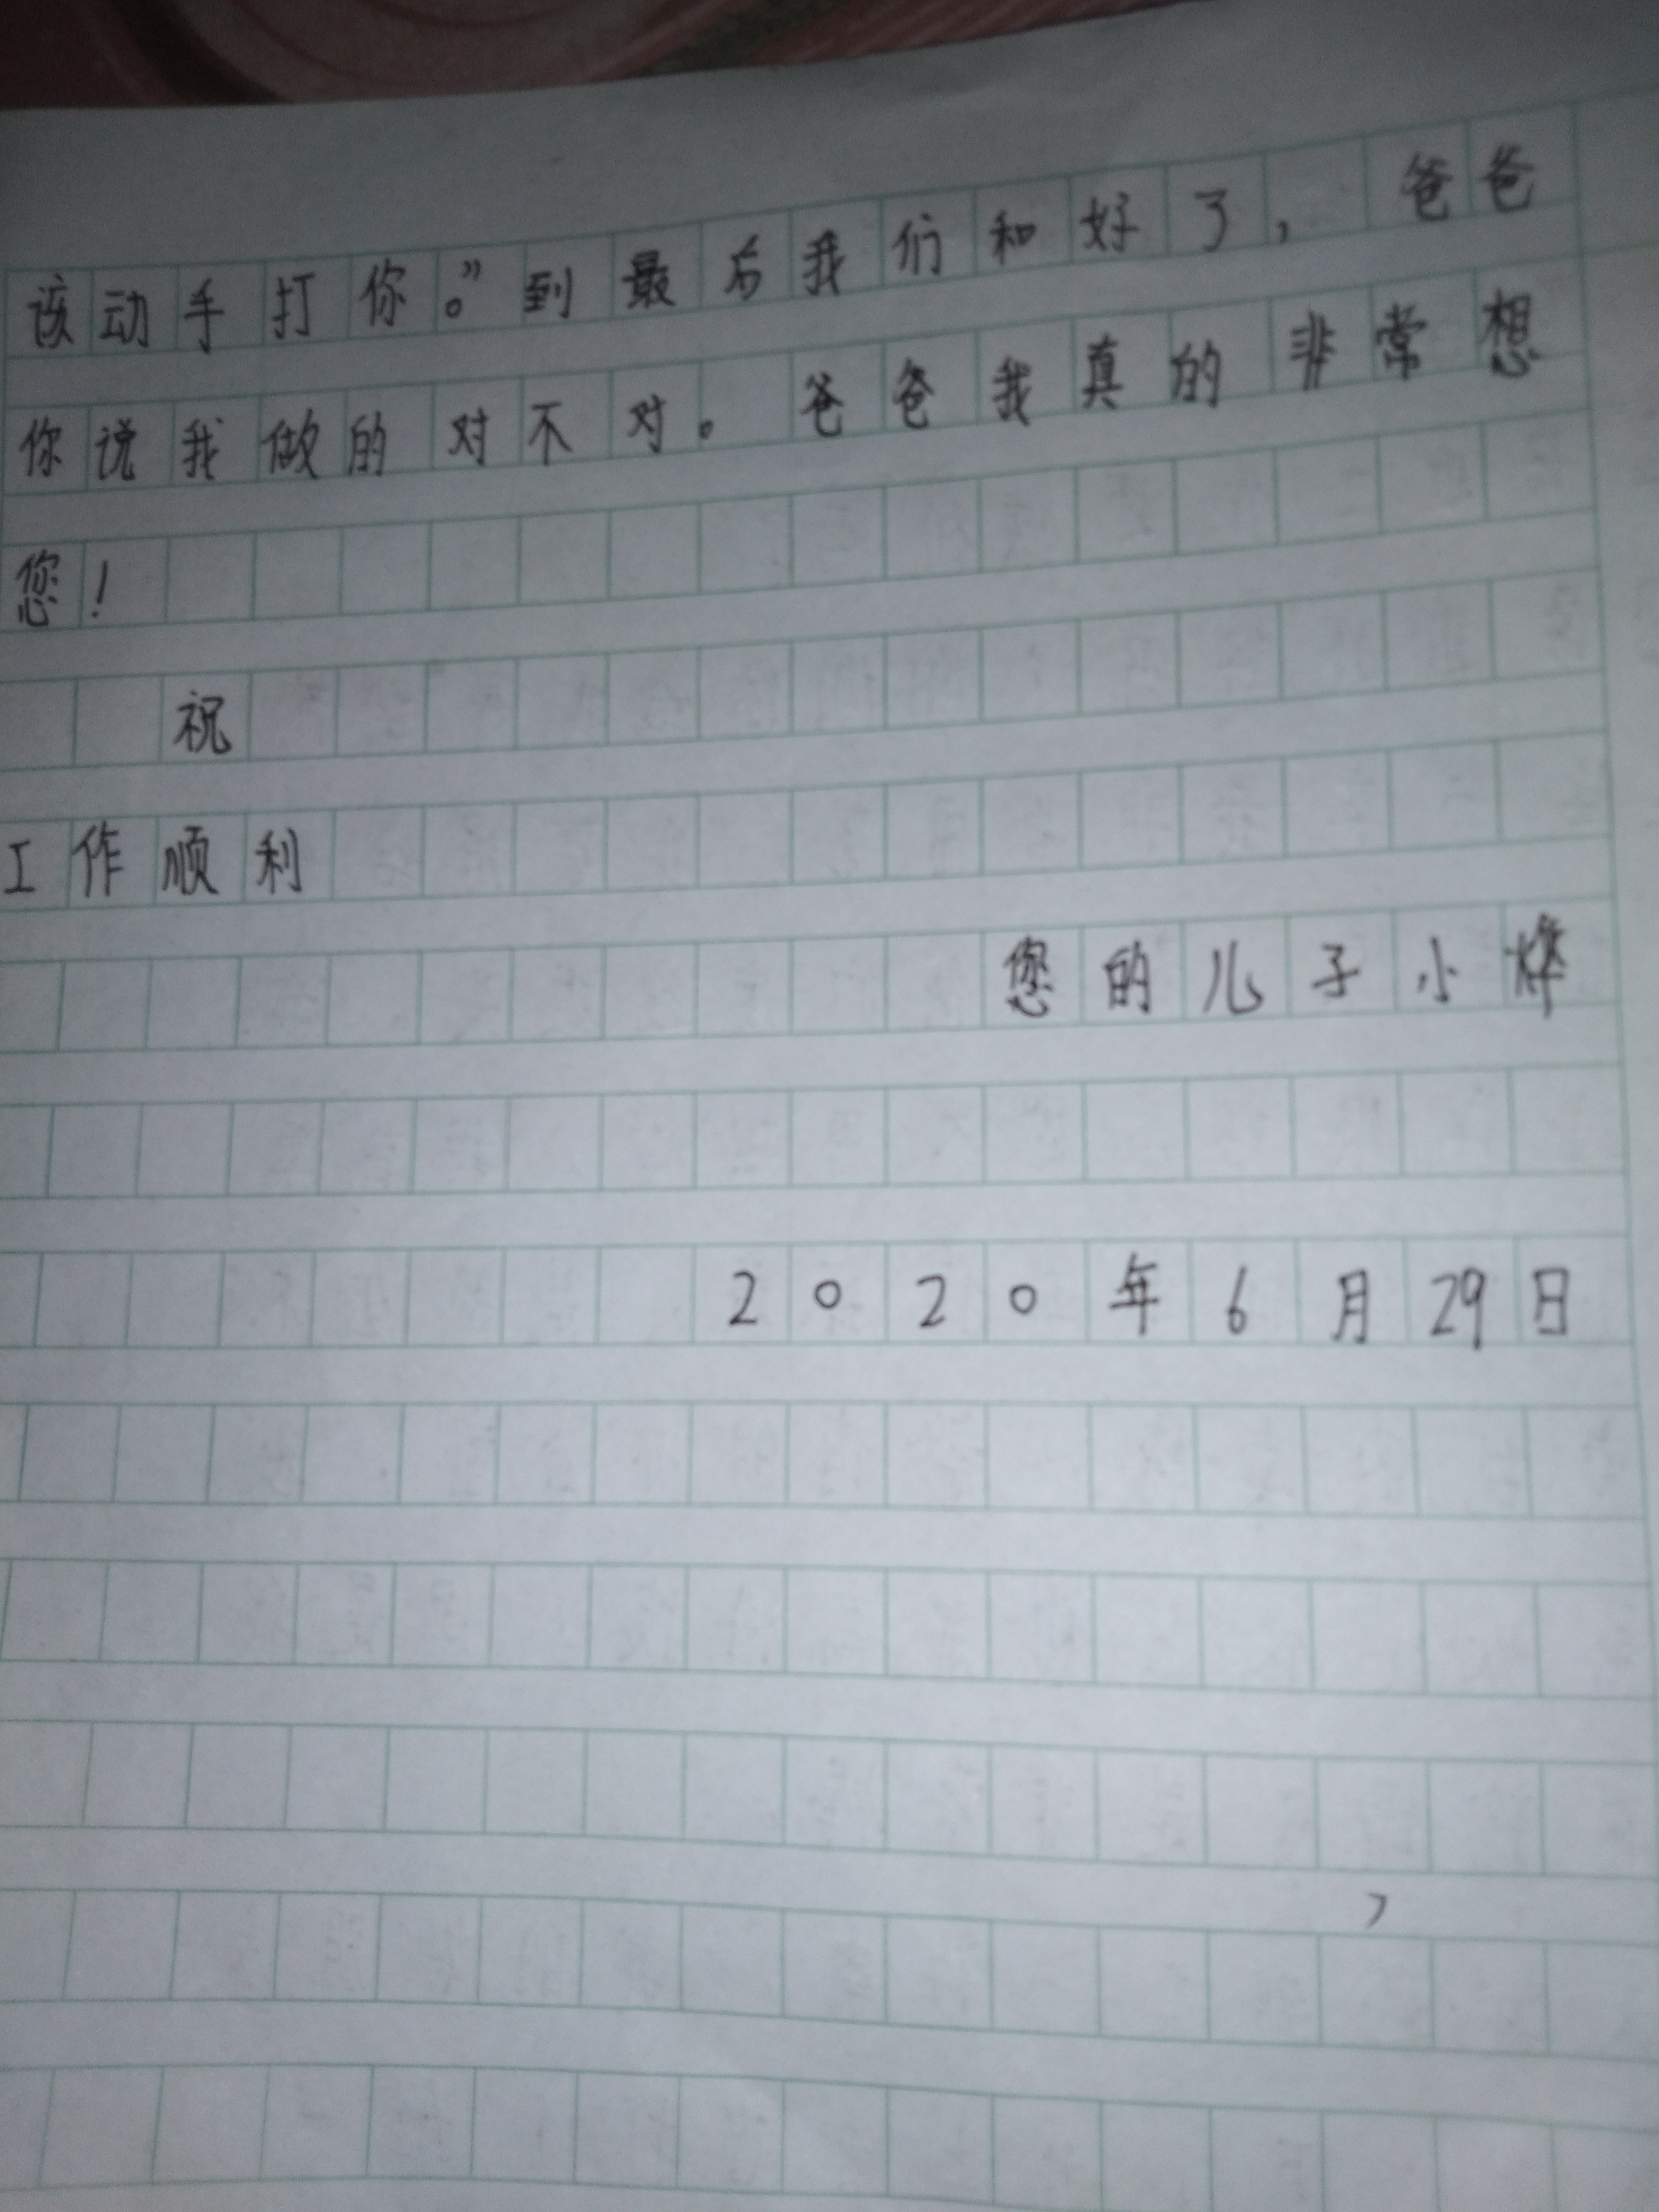 该动手打你。”到最后我们和好了，爸爸
你说我做的对不对。爸爸我真的非常想
您！
祝
工作顺利
您的儿子小烨
2020年6月29日